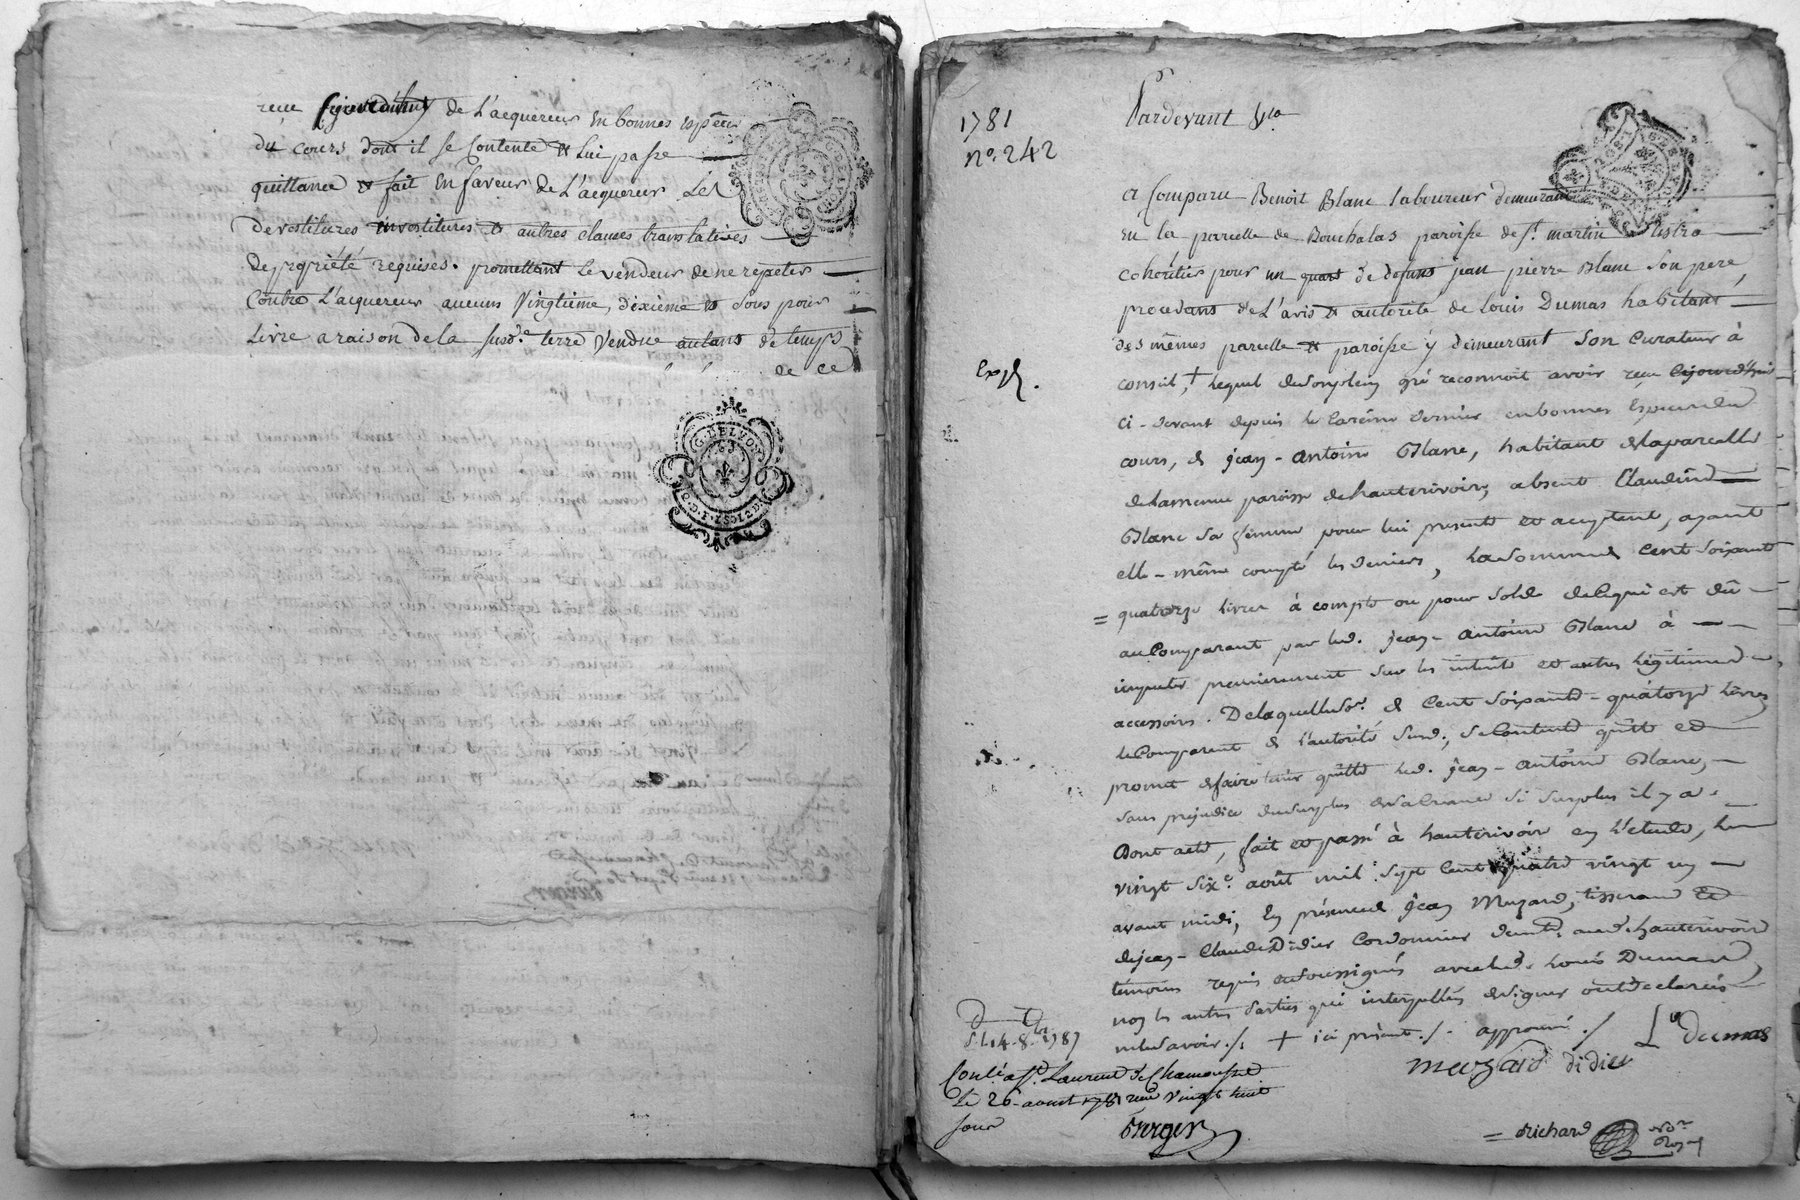 reçu cejourd'huy de L'acquereur En bonnes espèces
du cours dont il se Contente et lui passe
quittance et fait En faveur de L'acquereur Les
devestitures investitures et autres clauses translatives
de propriété requises. promettant le vendeur de ne repeter
Contre L'acquereur aucuns Vingtieme, dixieme et Sous pour
Livre a raison de la susd.e terre Vendue autans de temps
de ce
G. DE LYON
1781
n.o 242
Pardevant
Exp.
a Comparu Benoit Blanc laboureur demeurant
en la parcelle de Bouchalas paroisse de S.t martin Lestra
cohéritier pour un quart de defunt jean pierre Blanc Son pere,
procedant de L'avis et autorité de Louis Dumas habitant
des mêmes parcelle et paroisse y demeurant Son Curateur à
conseil, + Lequel de son plein gré reconnoit avoir reçu cejourd'huis
ci-devant depuis le Carême dernier en bonnes Especes du
cours, de jean-antoine Blanc, habitant de la parcelle
de la meme paroisse de hauterivoire, absent Claudine
Blanc Sa femme pour lui presente et acceptant, ayant
elle-même compté les deniers, La Somme de Cent Soixante
= quatorze Livres à compte ou pour Solde de Ce qui est dû
au Comparant par led. jean-antoine Blanc à
imputer premierement Sur les intérêts et autres légitimes
accessoires. De laquelle So.e de Cent Soixante-quatorze Livres
le Comparant de L'autorité Susd., Se Contente quitte et
promet de faire tenir quitte led. jean-antoine Blanc,
Sans préjudice du Surplus de la Creance Si Surplus il y a.
Dont acte, fait et passé à hauterivoire en L'etude, le
vingt Six.e août mil Sept Cent quatre vingt un
avant midi, En présence de jean Muzard, tisserand Et
de jean-Claude Didier Cordonnier demt. aud. hauterivoire
témoins requis et Soussignés avec led. Louis Dumas,
non les autres Parties qui interpellés de Signer ont declaré
ne le Savoir ./. + ici présent ./. approuvé ./.
L.s dumas
muzard didier
Conté a S.t Laurent de Chamousset
Le 26 aoust 1781 reçu Vingt huit
sous
Berger
= Richard